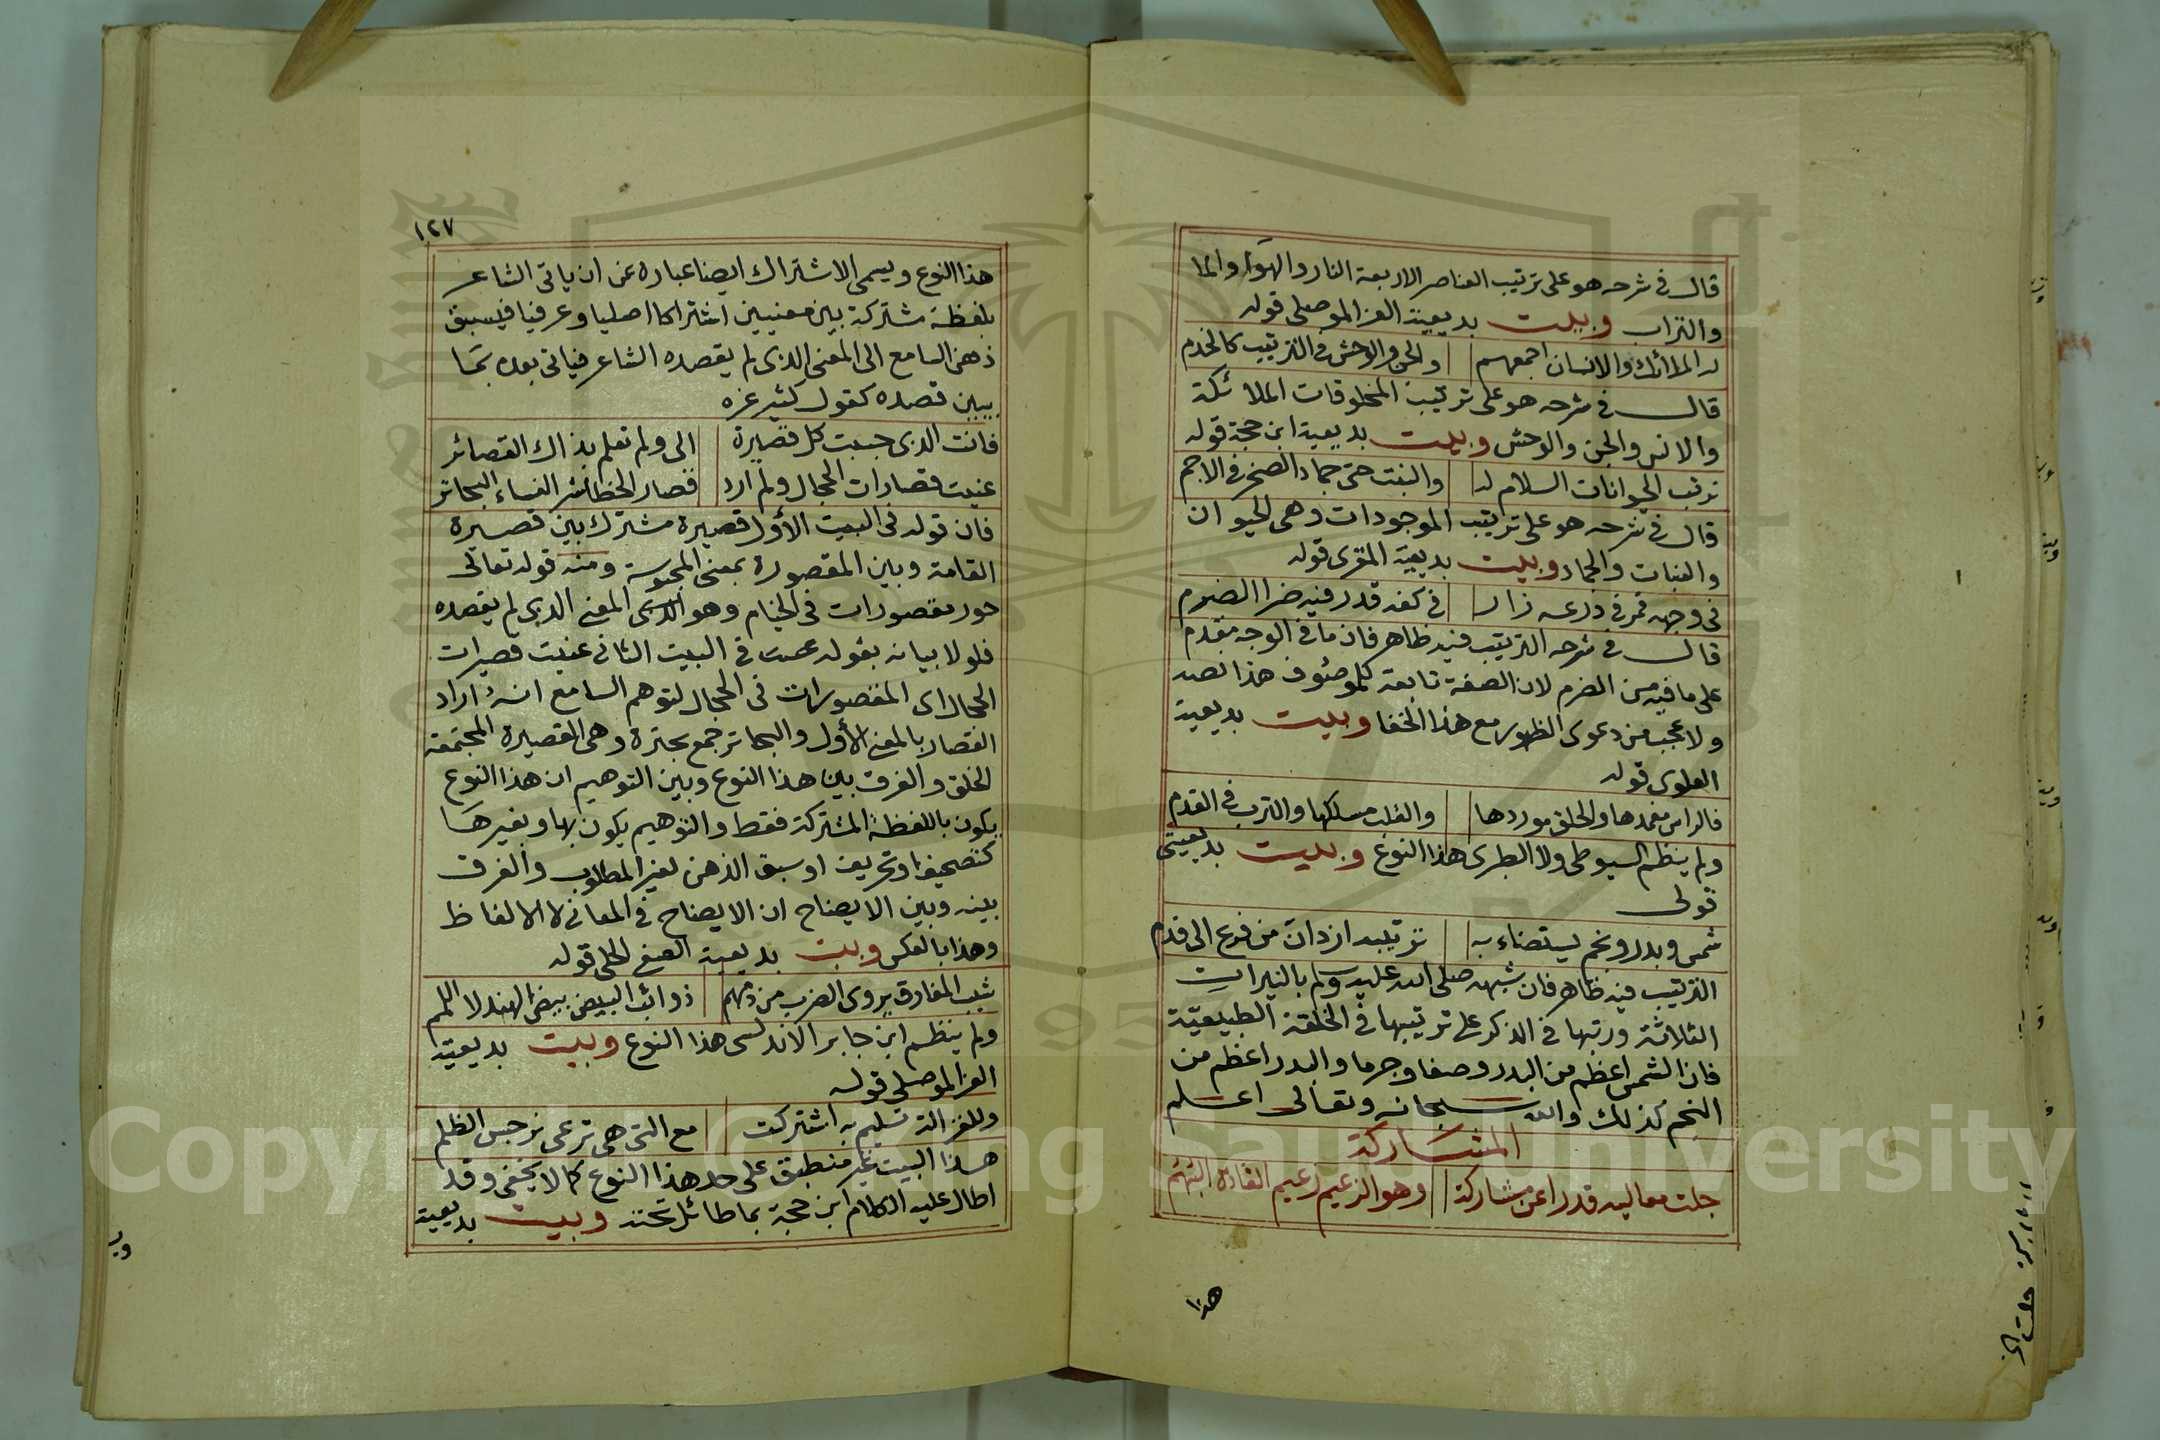 قال في شرحه هو على ترتيب العناصر الاربعة النار والهواء والماء
والتراب وبيت بديعية العز الموصلي قوله
له الملائك والانسان اجمعهم والجن والوحش في الترتيب كالخدم
قال في شرحه هو على ترتيب المخلوقات الملائكة
والانس والجن والوحش وبيت بديعية ابن حجة قوله
ترتب الحيوانات السلام له والنبت حتى جماد الصخر في الاجم
قال في شرحه هو على ترتيب الموجودات وهي الحيوان
والنبات والجماد وبيت بديعية المقري قوله
في وجهه قمر في درعه زار في كفه قدر فيه ضرا الضرم
قال في شرحه الترتيب فيه ظاهر فان ما في الوجه مقدم
على ما فيه من الضرم لان الصفة تابعة للموصوف هذا نصه
ولا عجب من دعوى الظهور مع هذا الخفا وبيت بديعية
العلوي قوله
فالراس مغمدها والحلق موردها والقلب مسلكها والترب في القدم
ولم ينظم السيوطي ولا الطبري هذا النوع وبيت بديعيتي
قولي
شمس وبدر ونجم يستضاء به ترتيبه ازدان من فرع الى قدم
الترتيب فيه ظاهر فان شبهه صلى الله عليه وسلم بالنيرات
الثلاثة ورتبها في الذكر على ترتيبها في الخلقة الطبيعية
فان الشمس اعظم من البدر وصفا وجرما والبدر اعظم من
النجم كذلك والله سبحانه وتعالى اعلم
المشاركة
جلت معاليه قدرا عن مشاركة وهو الزعيم زعيم القادة البهم
هذا
١٢٧
هذا النوع ويسمى الاشتراك ايضا عبارة عن ان ياتي الشاعر
بلفظة مشتركة بين معنيين اشتراكا اصليا وعرفيا فيسبق
ذهن السامع الى المعنى الذي لم يقصده الشاعر فياتي بعده بما
يبين قصده كقول كثير عزه
فانت الذي حببت كل قصيرة الي ولم تعلم بذاك القصائر
عنيت قصارات الحجال ولم ارد قصار الخطا شر النساء البحاتر
فان قوله في البيت الأول قصيرة مشترك بين قصيرة
القامة وبين المقصورة بمعنى المحبوسة ومنه قوله تعالى
حور مقصورات في الخيام وهو الذي المعنى الذي لم يقصده
فلولا بيانه بقوله في البيت الثاني عنيت قصيرات
الحجال اي المقصورات في الحجال لتوهم السامع انه اراد
القصار بالمعنى الأول والبحاتر جمع بحترة وهي القصيرة المجتمعة
الخلق والفرق بين هذا النوع وبين التوهيم ان هذا النوع
يكون باللفظة المشتركة فقط والتوهيم يكون بها وبغيرها
كتصحيف او تحريف او سبق الذهن لغير المطلوب والفرق
بينه وبين الايضاح ان الايضاح في المعاني لا الالفاظ
وهذا بالعكس وبيت بديعية الصفي الحلي قوله
شيب المفارق يروي الضرب من دمهم ذوائب البيض بيض الهند لا اللمم
ولم ينظم ابن جابر الاندلسي هذا النوع وبيت بديعية
العز الموصلي قوله
وللغزالة تسليم به اشتركت مع التي هي ترعى نرجس الظلم
هذا البيت غير منطبق على حد هذا النوع كما لا يخفى وقد
اطال عليه الكلام ابن حجة بما طائل تحته وبيت بديعية